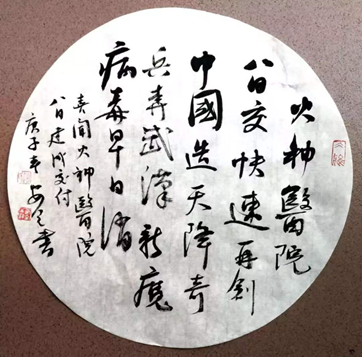 火神醫院
八日交快速再創
中國造天降奇
兵奔武漢魔
病毒早日消
喜聞火神醫院
八日建成交付
庚子年書